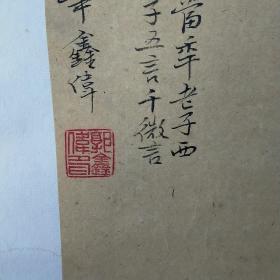 當年老子西
子五言千微言
年鑫偉
郭鑫偉印